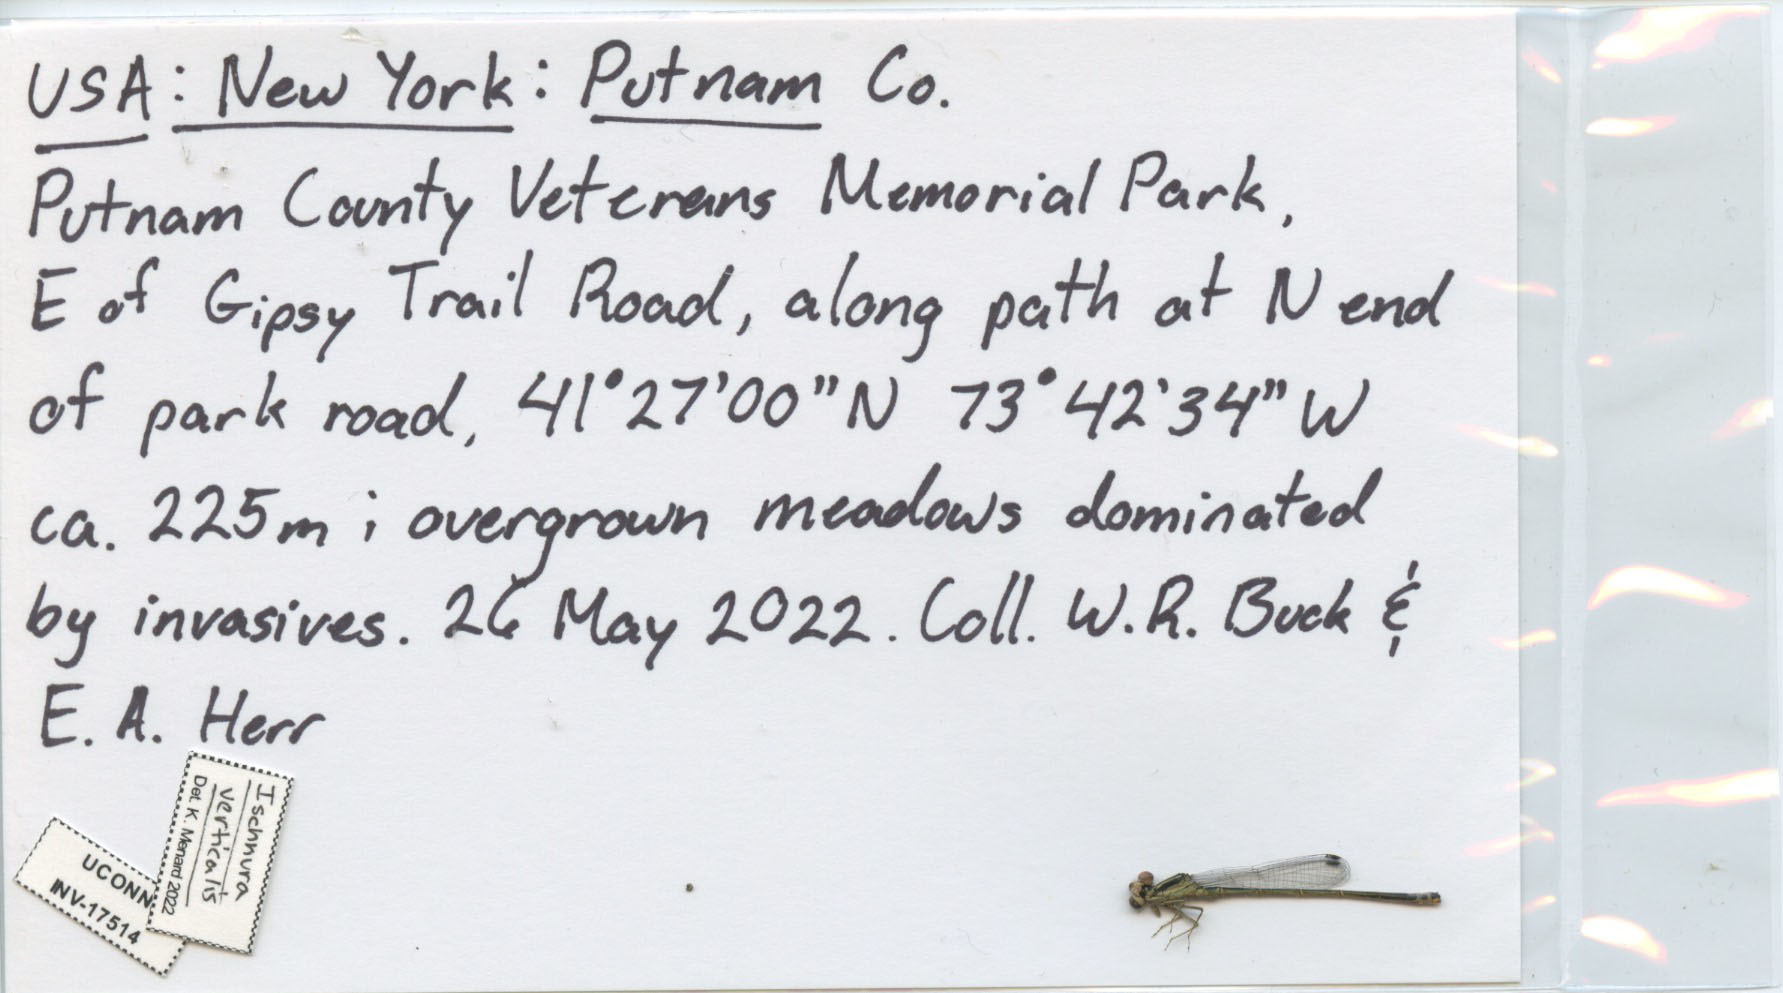 USA: New York: Putnam Co.
Putnam County Veterans Memorial Park,
E of Gipsy Trail Road, along path at N end
of park road, 41°27'00"N 73°42'34"W
ca. 225m; overgrown meadows dominated
by invasives. 26 May 2022. Coll. W.R. Buck &
E. A. Herr
Ischnura
verticalis
Det. K. Menard 2022
UCONN
INV-17514